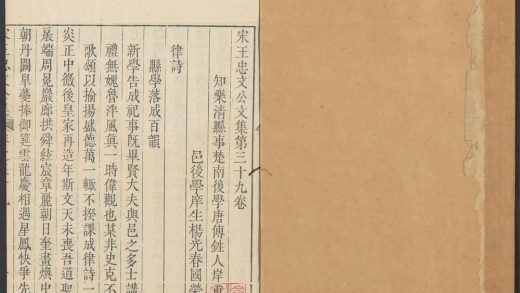 宋王忠文公文集第三十九卷
知樂清縣事楚南後學唐傳鉎人岸重
邑後學庠生楊光春國榮
律詩
縣學落成百韻
新學告成祀事旣畢賢大夫與邑之多士講
禮無媿魯泮風真一時偉觀也某非史克不
歌頌以揄揚盛德萬一輒不揆課成律詩一
炎正中微後皇家再造年斯文天未喪吾道聖
扆端周冕嚴廊拱舜絃宸章麗朝日奎畫煥中
朝丹闕皐夔捧御筵雲龍慶相遇星鳳快爭先